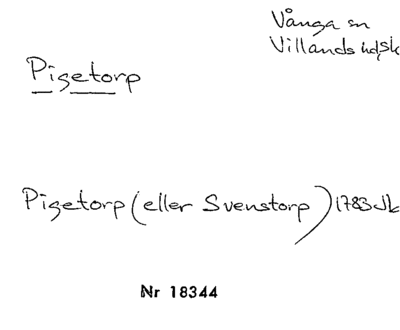 Vånga sn
Villands hd, Sk
Pigetorp
Pigetorp (eller Svenstorp) 1783 Jb
Nr 18344